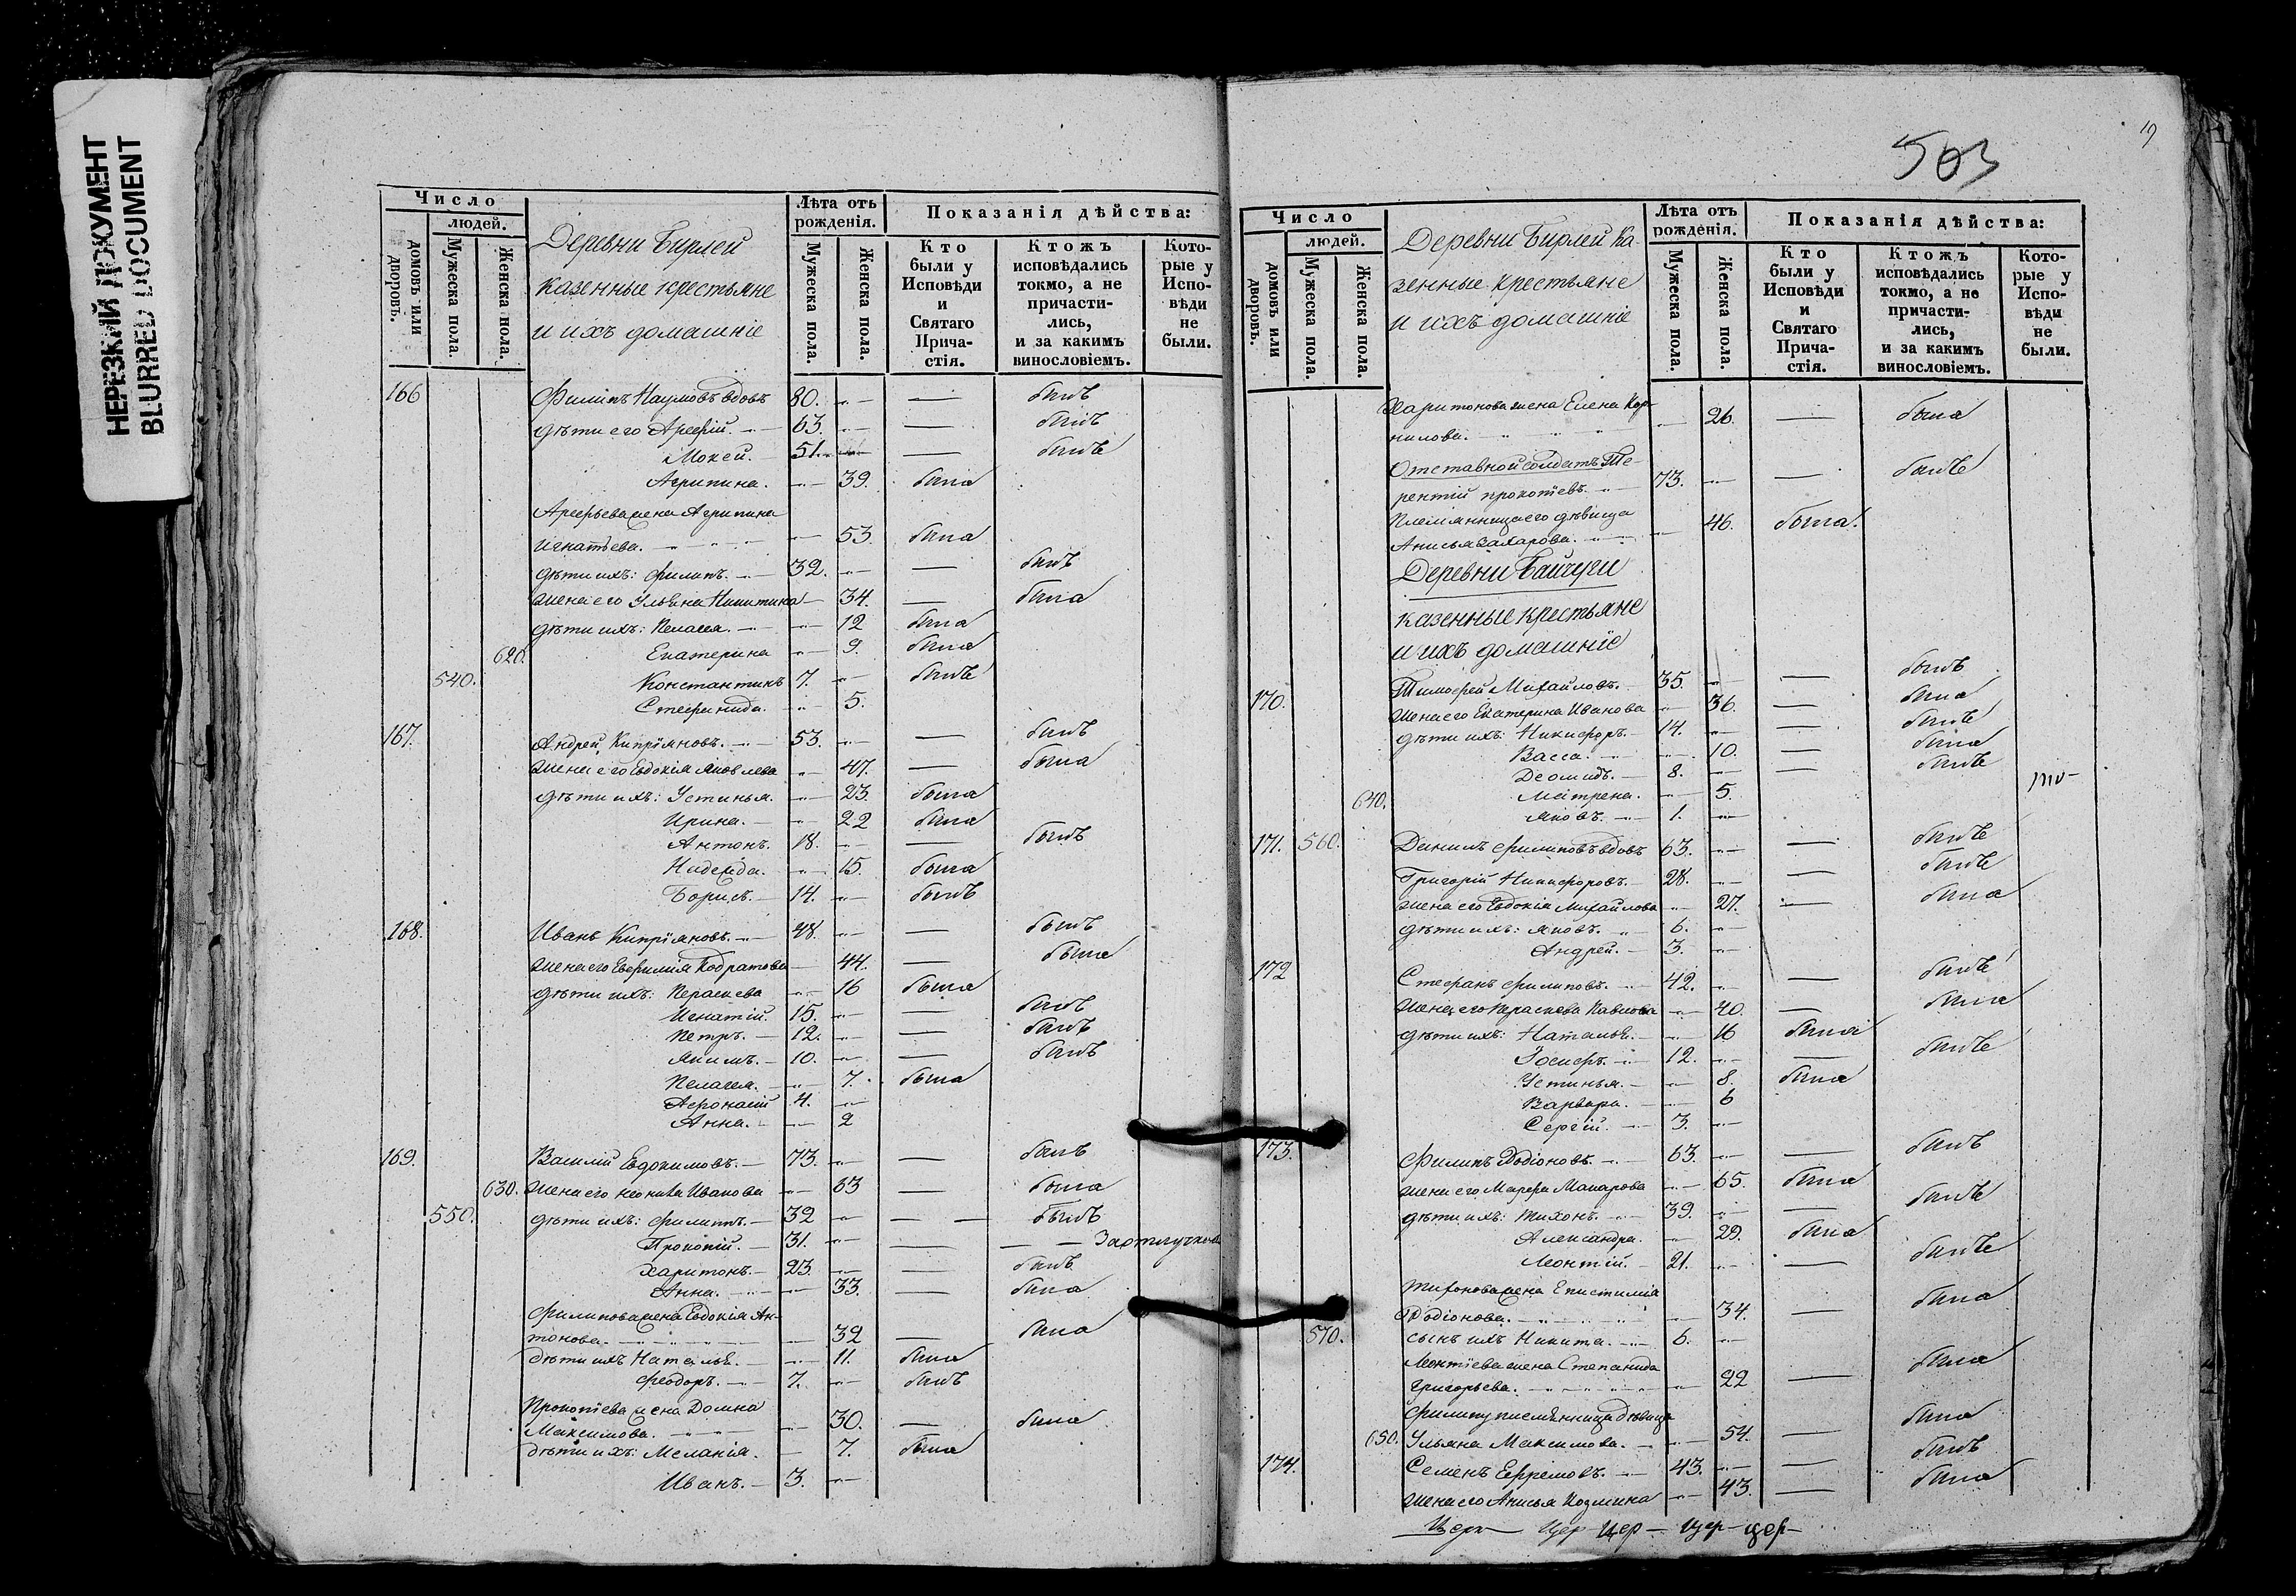 НЕРЕЗКИЙ ДОКУМЕНТ
BLURRED DOCUMENT
Число
людей.
домовъ или дворовъ.
Мужеска пола.
Женска пола.
Деревни Бирлей
казенные крестьяне
и ихъ домашніе
Лѣта отъ рожденія.
Мужеска пола.
Женска пола.
Показанія дѣйства:
Кто были у Исповѣди и Святаго Причастія.
Ктожъ исповѣдались токмо, а не причастились, и за какимъ винословіемъ.
Которые у Исповѣди не были.
166 Филипъ Наумовъ вдовъ 80. — былъ
дѣти его Арефій. 63. — былъ
Мокей. 51. — былъ
Агрипина. 39. была
Арефьева жена Агрипина
Игнатьева. 53. была
дѣти ихъ: Филипъ. 32. — былъ
жена его Ульяна Никитина 34. — была
дѣти ихъ: Пелагея. 12 была
620. Екатерина 9. была
540. Константинъ 7. былъ
Стефанида. 5.
167. Андрей Кипріяновъ. 53. — былъ
жена его Евдокія Яковлева 47. — была
дѣти ихъ: Устинья. 23. была
Ирина. 22 была
Антонъ. 18. — былъ
Надежда. 15. была
Борисъ. 14. былъ
168. Иванъ Кипріяновъ. 48. — былъ
жена его Евфимія Кодратова 44. — была
дѣти ихъ: Параскева 16 была
Игнатій. 15. — былъ
Петръ. 12. — былъ
Якимъ. 10. — былъ
Пелагея. 7. была
Афонасій 4.
Анна. 2
169. Василій Евдокимовъ. 73. — былъ
630. жена его Неонила Иванова 63 — была
550. дѣти ихъ: Филиппъ. 32 — — былъ
Прокопій. 31. — — — За отлучкою
Харитонъ. 23. — былъ
Анна. 33. — была
Филипова жена Евдокія Ан-
тонова. 32 — была
дѣти ихъ Наталья. 11. была
Феодоръ. 7. былъ
Прокопіева жена Домна
Максимова. 30. — была
дѣти ихъ: Меланія. 7. была
Иванъ. 3.
503
19
Число
людей.
домовъ или дворовъ.
Мужеска пола.
Женска пола.
Деревни Бирлей ка-
зенные крестьяне
и ихъ домашніе
Лѣта отъ рожденія.
Мужеска пола.
Женска пола.
Показанія дѣйства:
Кто были у Исповѣди и Святаго Причастія.
Ктожъ исповѣдались токмо, а не причастились, и за какимъ винословіемъ.
Которые у Исповѣди не были.
Харитонова жена Елена Кор-
нилова. 26. — была
Отставной солдатъ Те-
рентій Прокопіевъ. 73. — былъ
Племянница его дѣвица
Анисья Захарова. 46. была.
Деревни Байчуги
казенные крестьяне
и ихъ домашніе
170. Тимофей Михайловъ. 35. — былъ
жена его Екатерина Иванова 36. — была
дѣти ихъ: Никифоръ. 14. — былъ
Васса. 10. — была
Деомидъ. 8. — былъ
640. Матрена. 5.
Яковъ. 1.
171. 560. Данилъ Филиповъ вдовъ 63. — былъ
Григорій Никифоровъ. 28. — былъ
жена его Евдокія Михайлова 27. — была
дѣти ихъ: Яковъ. 6.
Андрей. 3.
172 Стефанъ Филиповъ. 42. — былъ
жена его Параскева Павлова 40. — была
дѣти ихъ: Наталья. 16 была
Іосифъ. 12. — былъ
Устинья. 8. была
Варвара. 6
Сергій. 3.
173. Филипъ Родіоновъ. 63. — былъ
жена его Марфа Макарова 65. была
дѣти ихъ: Тихонъ. 39. — былъ
Александра. 29. была
Леонтій. 21. — былъ
Тихонова жена Епистимія
Родіонова. 34. — была
570. сынъ ихъ Никита. 6.
Леонтіева жена Степанида
Григорьева. 22 — была
Филипу племянница дѣвица
650. Ульяна Максимова. 54. — была
174. Семенъ Ефремовъ. 43. — былъ
жена его Анисья Козмина 43. — была
Церк- Цер- Цер- Цер- цер-